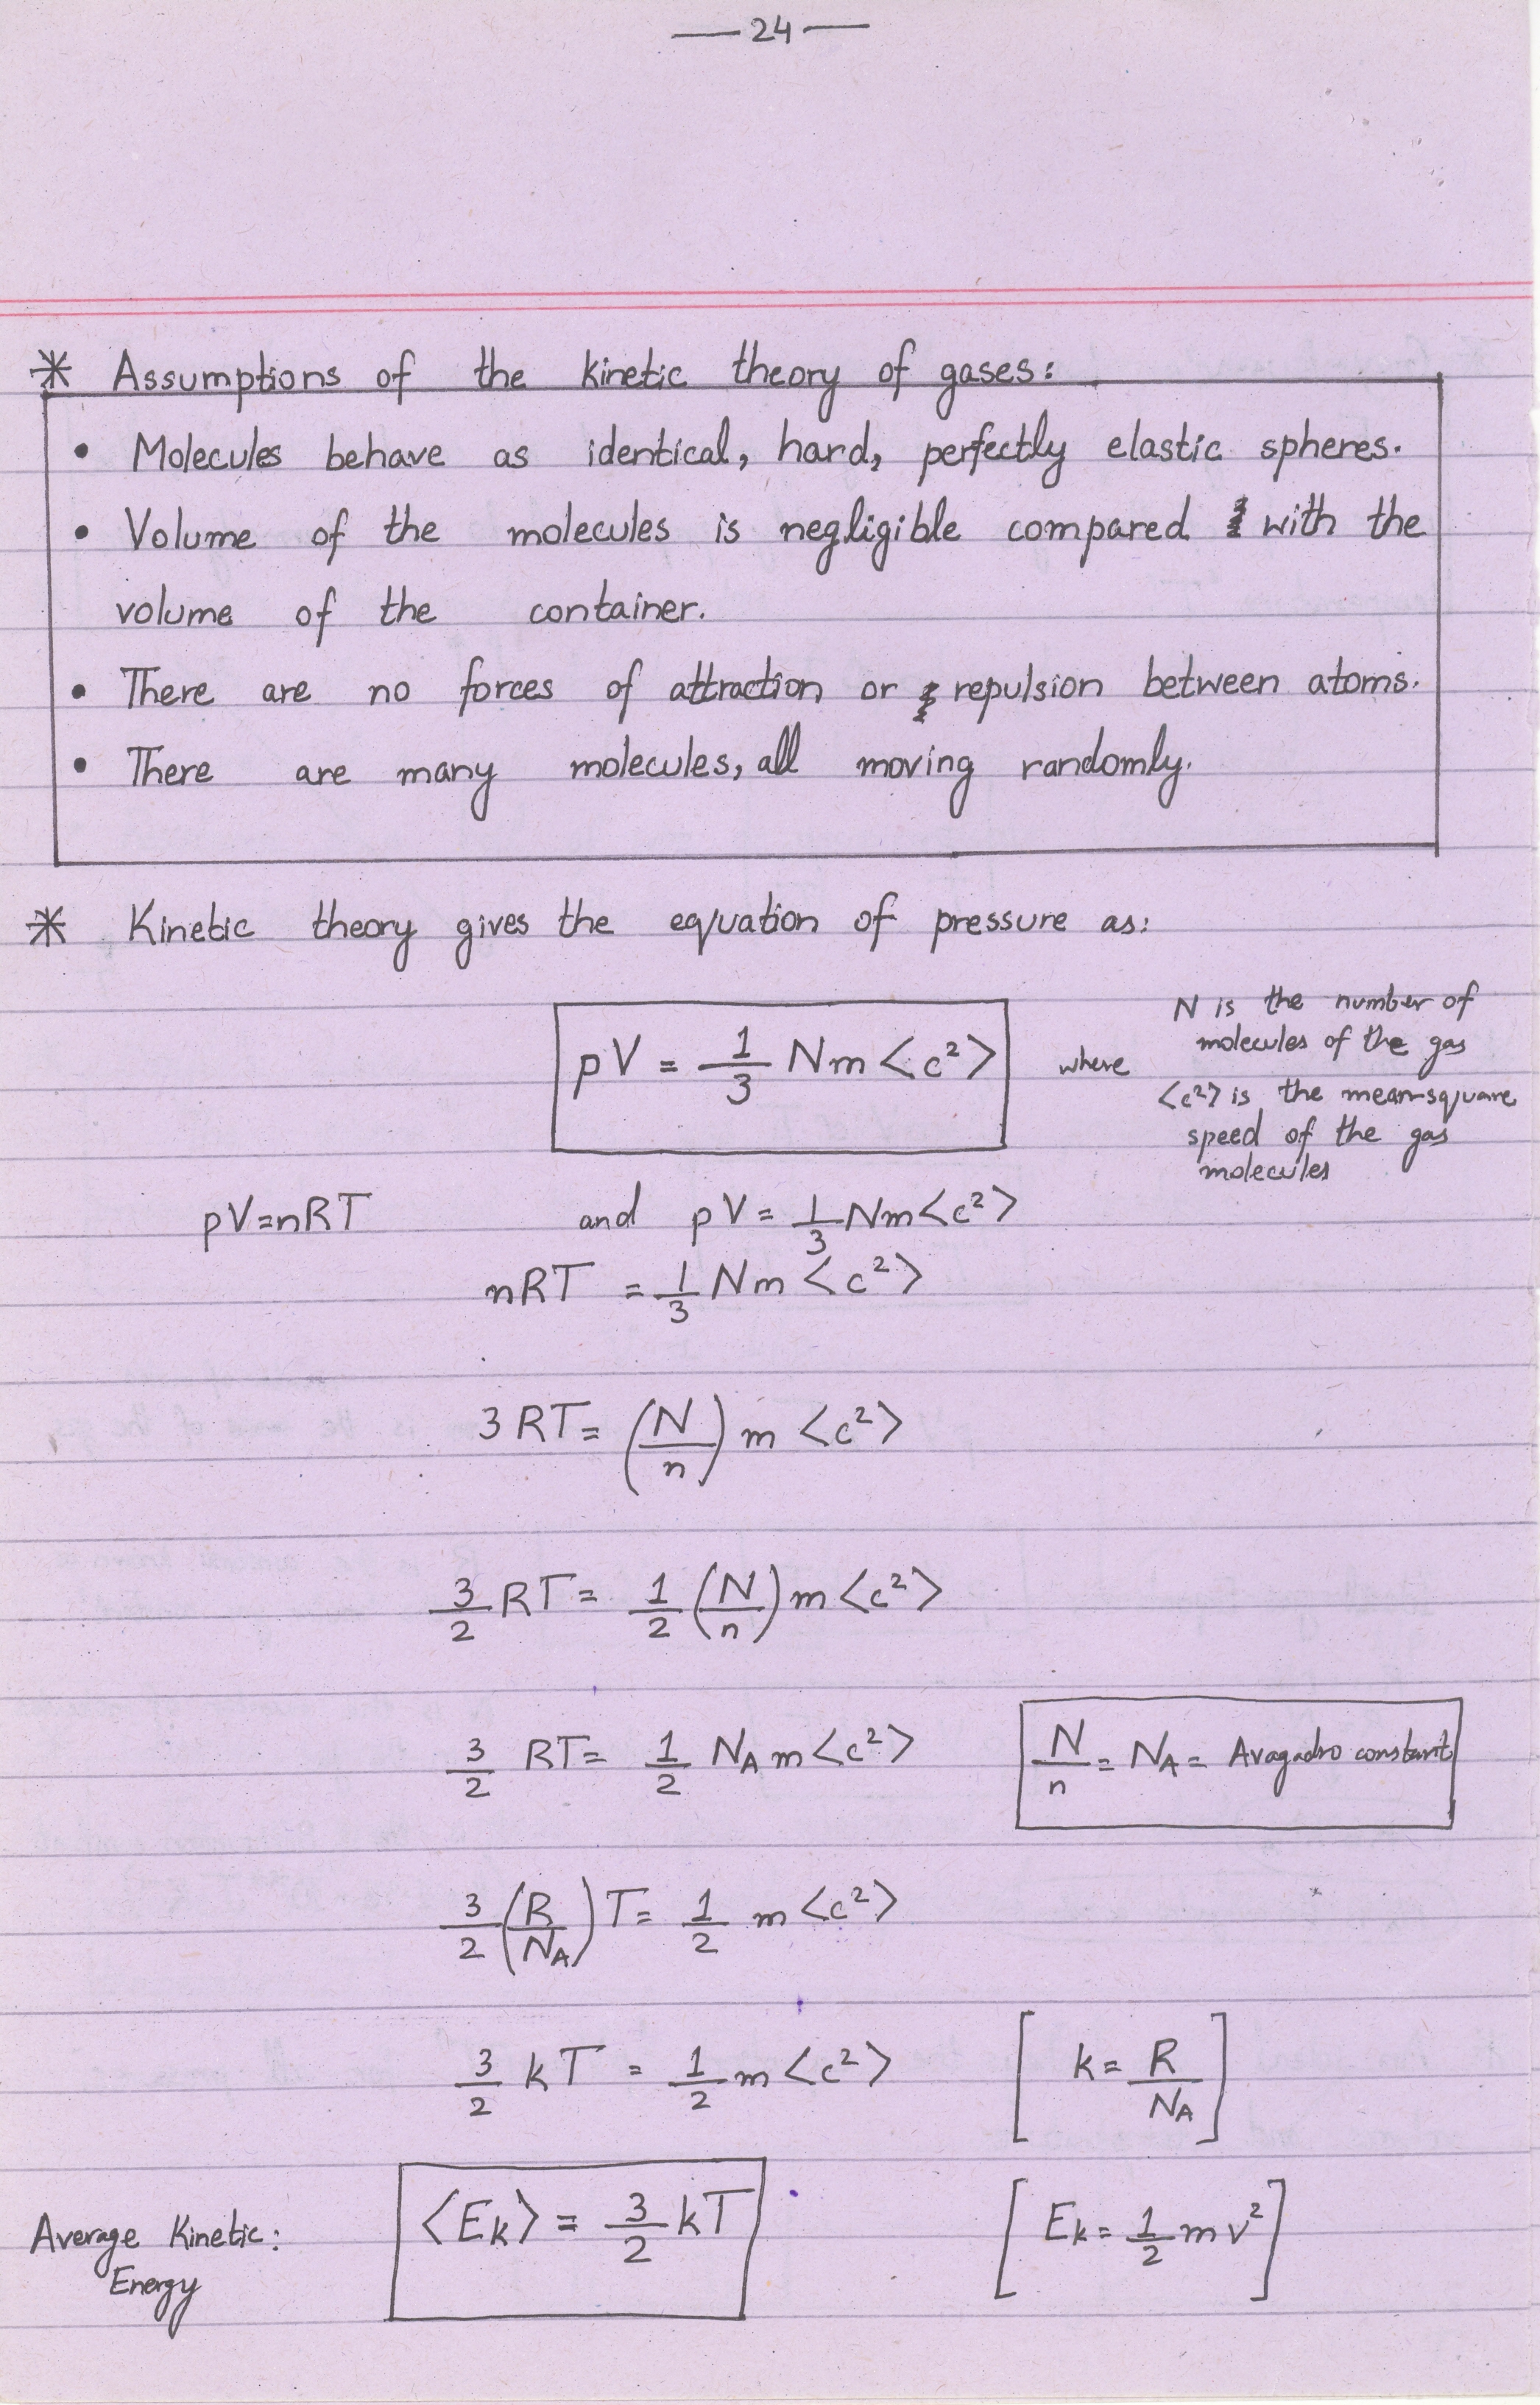 — 24 —
* Assumptions of the kinetic theory of gases:
• Molecules behave as identical, hard, perfectly elastic spheres.
• Volume of the molecules is negligible compared with the
volume of the container.
• There are no forces of attraction or repulsion between atoms.
• There are many molecules, all moving randomly.
* Kinetic theory gives the equation of pressure as:
pV = 1/3 Nm <c²> where
N is the number of
molecules of the gas
<c²> is the mean-square
speed of the gas
molecules
pV=nRT and pV = 1/3 Nm<c²>
nRT = 1/3 Nm <c²>
3RT = (N/n) m <c²>
3/2 RT = 1/2 (N/n) m <c²>
3/2 RT = 1/2 NA m <c²> N/n = NA = Avagadro constant
3/2 (R/NA) T = 1/2 m <c²>
3/2 kT = 1/2 m <c²> [k = R/NA]
Average Kinetic: <Ek> = 3/2 kT [Ek = 1/2 mv²]
Energy